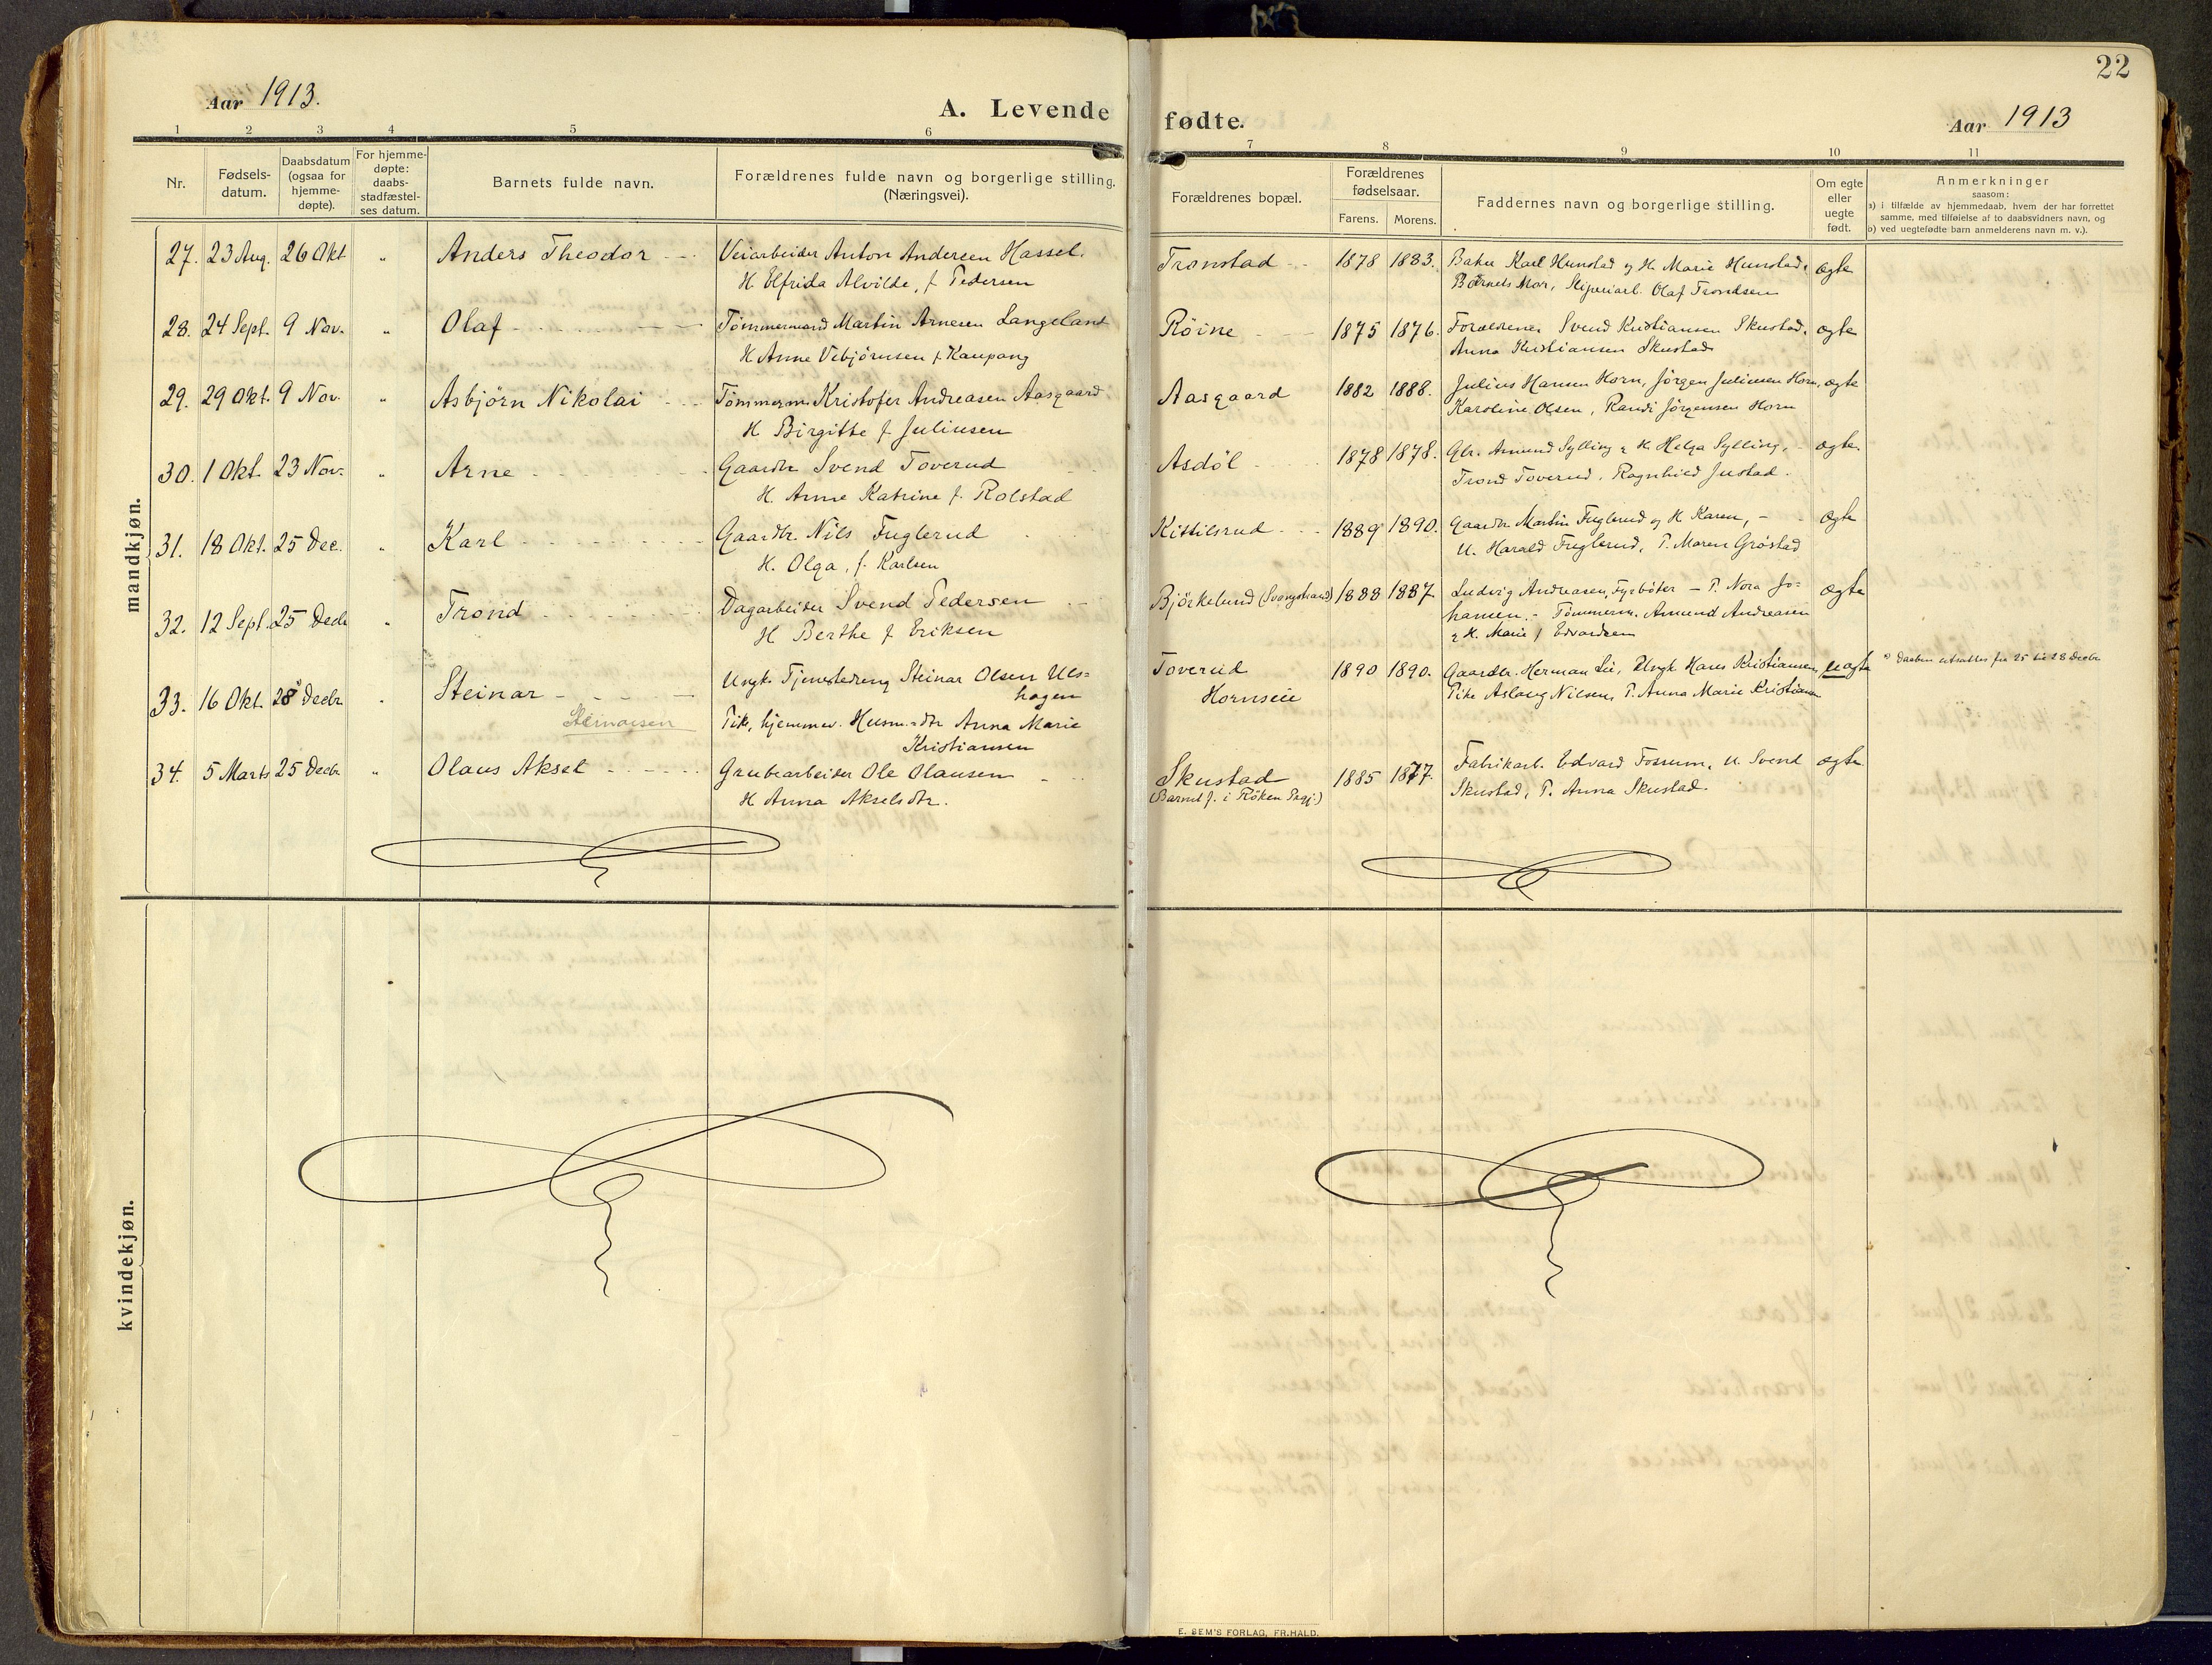 22
Aar 1913.
A. Levende fødte.
Aar 1913
1 2 3 4 5 6 7 8 9 10 11
Nr.
Fødsels-
datum.
Daabsdatum
(ogsaa for
hjemme-
døpte).
For hjemme-
døpte:
daabs-
stadfæstel-
ses datum.
Barnets fulde navn.
Forældrenes fulde navn og borgerlige stilling.
(Næringsvei).
Forældrenes bopæl.
Forældrenes
fødselsaar.
Farens. Morens.
Faddernes navn og borgerlige stilling.
Om egte
eller
uegte
født.
Anmerkninger
saasom:
a) i tilfælde av hjemmedaab, hvem der har forrettet
samme, med tilføielse af to daabsvidners navn, og
b) ved uegtefødte barn anmelderens navn m. v.).
mandkjøn.
27. 23 Aug. 26 Okt. " Anders Theodor Veiarbeider Anton Andersen Hassel. Tronstad 1878 1883. Baker Karl Hunstad og H. Marie Hunstad, ægte
H. Elfrida Alvilde, f. Pedersen Barnets Mor, Sliperiarb. Olaf Trondsen
28. 24 Sept. 9 Nov. " Olaf Tømmermand Martin Arnesen Langeland Röine 1875 1876. Forældrene, Svend Kristiansen Skustad, ægte
H. Anne Vebjørnsen f. Kaupang Anna Kristiansen Skustad
29. 29 Okt. 9 Nov. " Asbjörn Nikolai Tömmerm. Kristofer Andreasen Aasgaard Aasgaard 1882 1888. Julius Hansen Horn, Jörgen Juliusen Horn, ægte
H. Birgitte f. Juliusen Karoline Olsen, Randi Jörgensen Horn
30. 1 Okt. 23 Nov. " Arne Gaardbr. Svend Toverud Asdöl 1878 1878. Gbr. Amund Sylling & H. Helga Sylling, ægte.
H. Anne Katrine f. Rolstad Trond Toverud, Ragnhild Justad.
31. 18 Okt. 25 Dec. " Karl Gaardbr. Nils Fuglerud Kittilsrud 1889 1890. Gaardbr. Martin Fuglerud og H. Karen, ægte
H. Olga, f. Karlsen U. Harald Fuglerud, P. Maren Gröstad
32. 12 Sept. 25 Decbr " Trond Dagarbeider Svend Pedersen Björkelund (Svangstrand) 1888 1887 Ludvig Andreasen, Fyrböter – P. Nora Jo= ægte
H. Berthe f. Eriksen hansen. – Tömmerm. Amund Andreasen
& H. Marie f. Edvardsen
33. 16 Okt. 28 Decbr " Steinar Ungk. Tjenestedreng Steinar Olsen Uls= Toverud 1890 1890. Gaardbr. Herman Lie, Ungk. Hans Kristiansen, uægte *) Daaben utsattes fra 25 til 28 Decbr
hagen Hornseie Pike Aslaug Nilsen, P. Anna Marie Kristiansen
Steinarsen Pike, hjemmev. Husm.dtr Anna Marie
Kristiansen
34. 5 Marts 25 Decbr " Olaus Aksel Grubearbeider Ole Olausen Skustad 1885 1877. Fabrikarb. Edvard Fossum, U. Svend ægte.
H. Anna Akselsdtr. (Barnet f. i Röken Prgj.) Skustad, P. Anna Skustad.
kvindekjøn.
E. SEM'S FORLAG, FR.HALD.